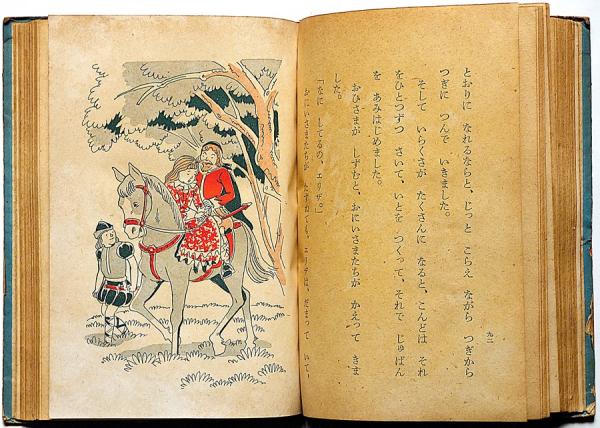 とおりに なれるならと、じっと こらえ ながら つぎから
つぎに つんで いきました。
そして いらくさが たくさんに なると、こんどは それ
をひとつずつ さいて、いとを つくって、それで じゅばん
を あみはじめました。
おひさまが しずむと、おにいさまたちが かえって きま
した。
「なに してるの、エリザ。」
おにいさまたちが たずねても、エリザは、だまって いて、
九二